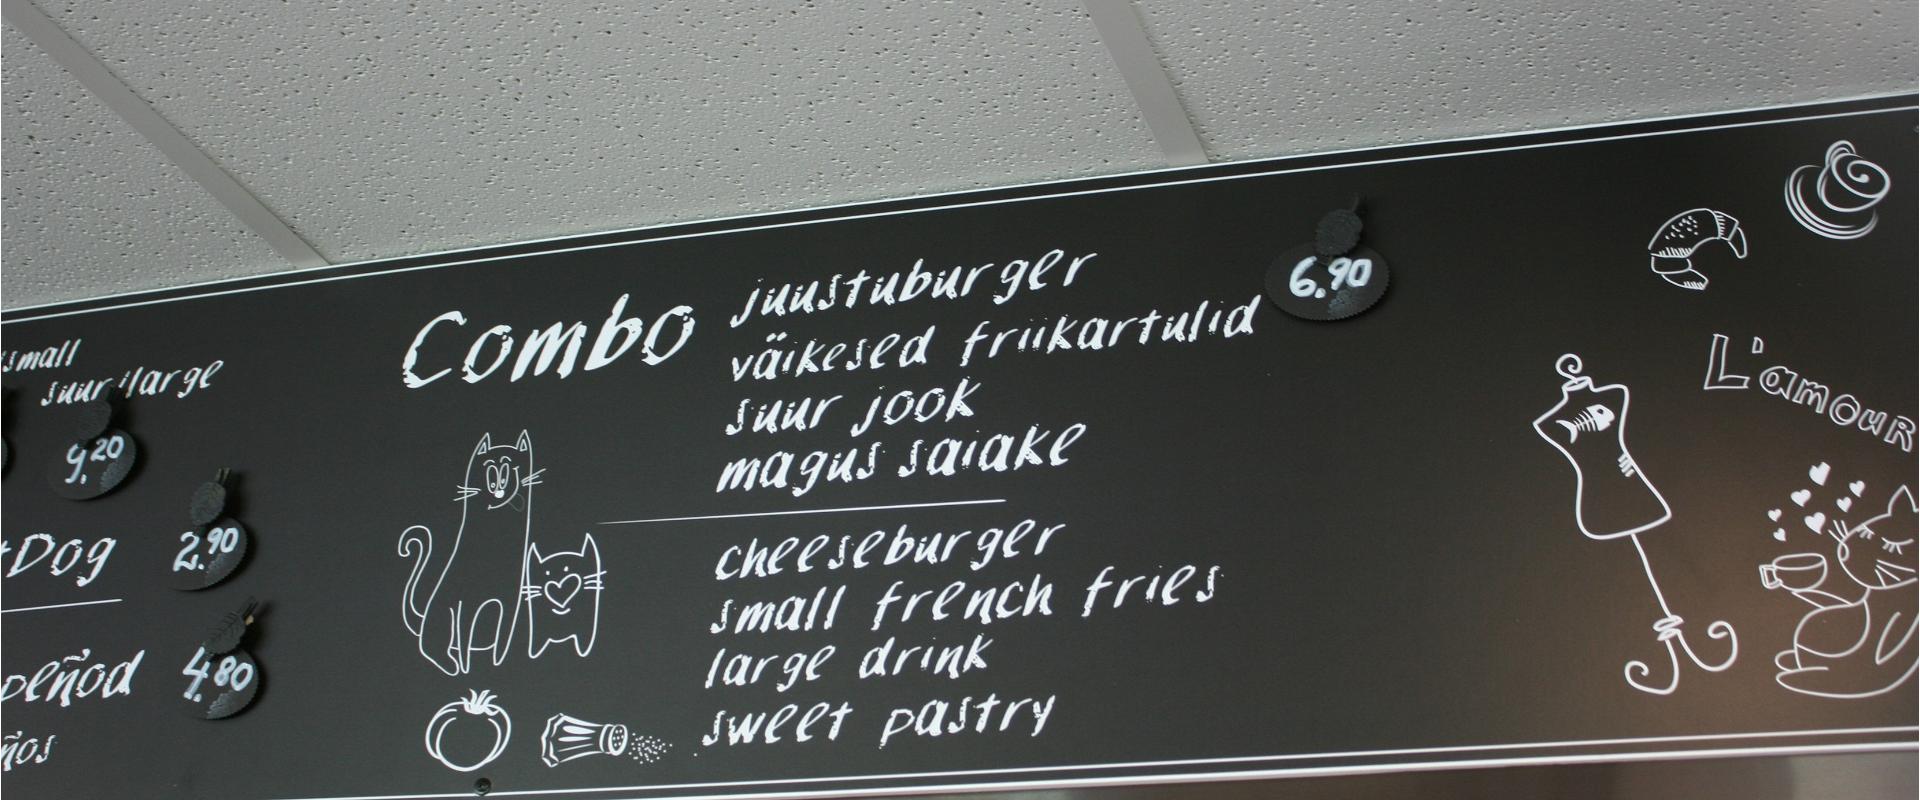 small
suur/large
9.20
Dog
2.90
4.80
Combo
juustuburger
6.90
väikesed friikartulid
suur jook
magus saiake
cheeseburger
small french fries
large drink
sweet pastry
L'amour